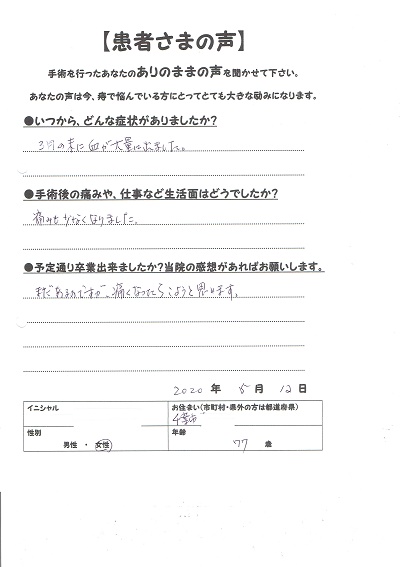 【患者さまの声】
手術を行ったあなたのありのままの声を聞かせて下さい。
あなたの声は今、痔で悩んでいる方にとってとても大きな励みになります。
●いつから、どんな症状がありましたか?
3月の末に血が大量に出ました。
●手術後の痛みや、仕事など生活面はどうでしたか?
痛みも少なくなりました。
●予定通り卒業出来ましたか?当院の感想があればお願いします。
まだ ですが、痛くなったらこようと思います。
2020 年 5 月 12 日
イニシャル
お住まい(市町村・県外の方は都道府県)
千葉市
性別
年齢
男性 ・ 女性
77 歳